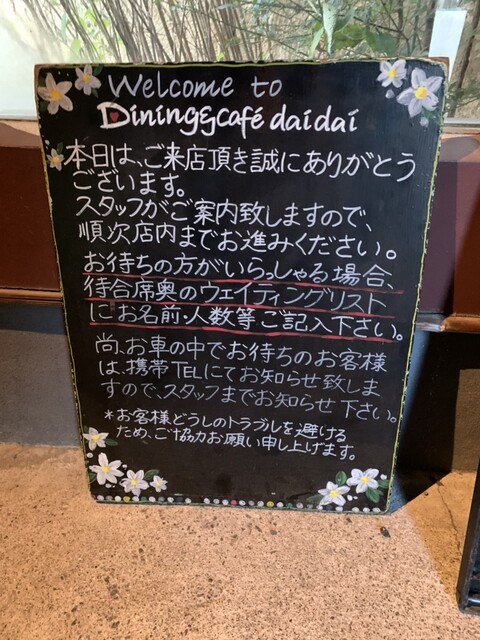 Welcome to
Dining&café daidai
本日は、ご来店頂き誠にありがとう
ございます。
スタッフがご案内致しますので、
順次店内までお進みください。
お待ちの方がいらっしゃる場合、
待合席奥のウェイティングリスト
にお名前・人数等ご記入下さい。
尚、お車の中でお待ちのお客様
は、携帯TELにてお知らせ致しま
すので、スタッフまでお知らせ下さい。
*お客様どうしのトラブルを避ける
ため、ご協力お願い申し上げます。